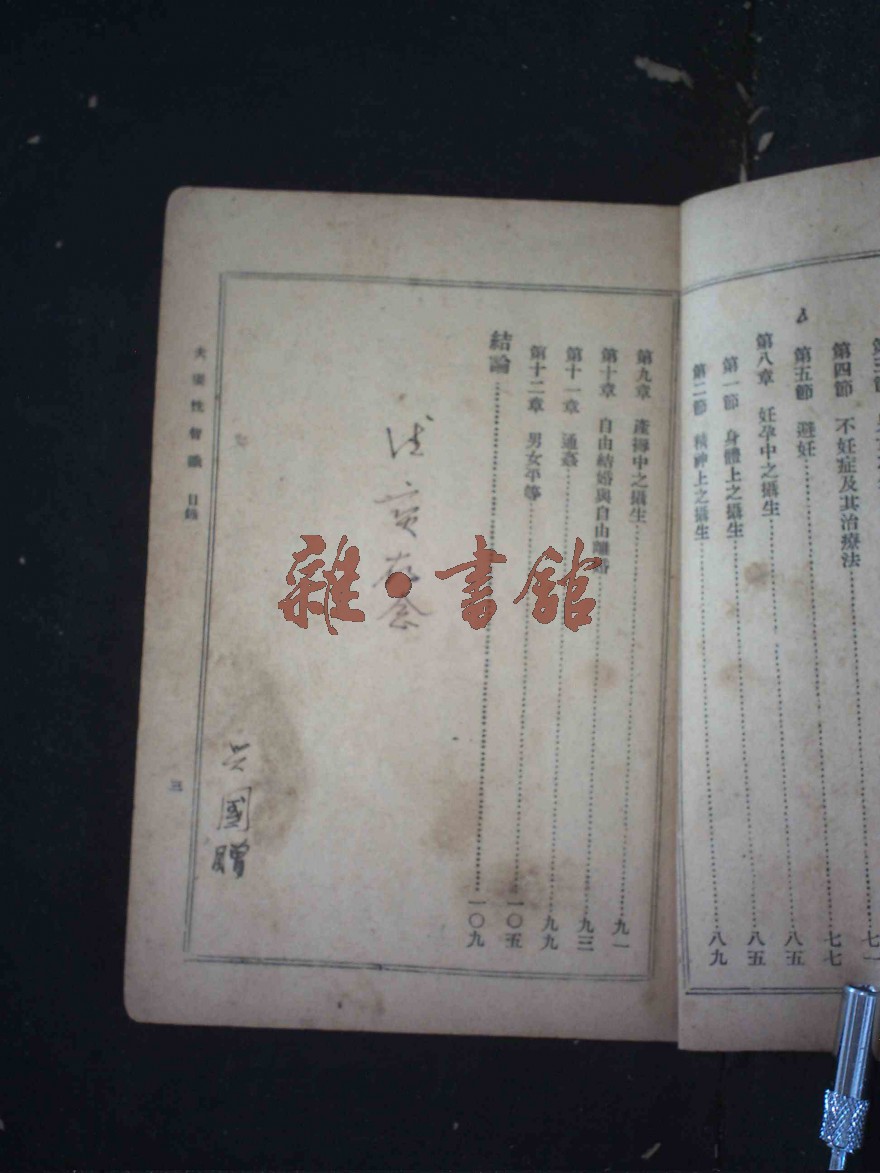 第四節　不妊症及其治療法…………七七
第五節　避妊…………八五
第八章　妊孕中之攝生…………八五
第一節　身體上之攝生
第二節　精神上之攝生…………八九
第九章　產褥中之攝生…………九一
第十章　自由結婚與自由離婚…………九三
第十一章　通姦…………九九
第十二章　男女平等…………一〇五
結論…………一〇九
存念
國贈
性智識　目錄
三
雜·書館